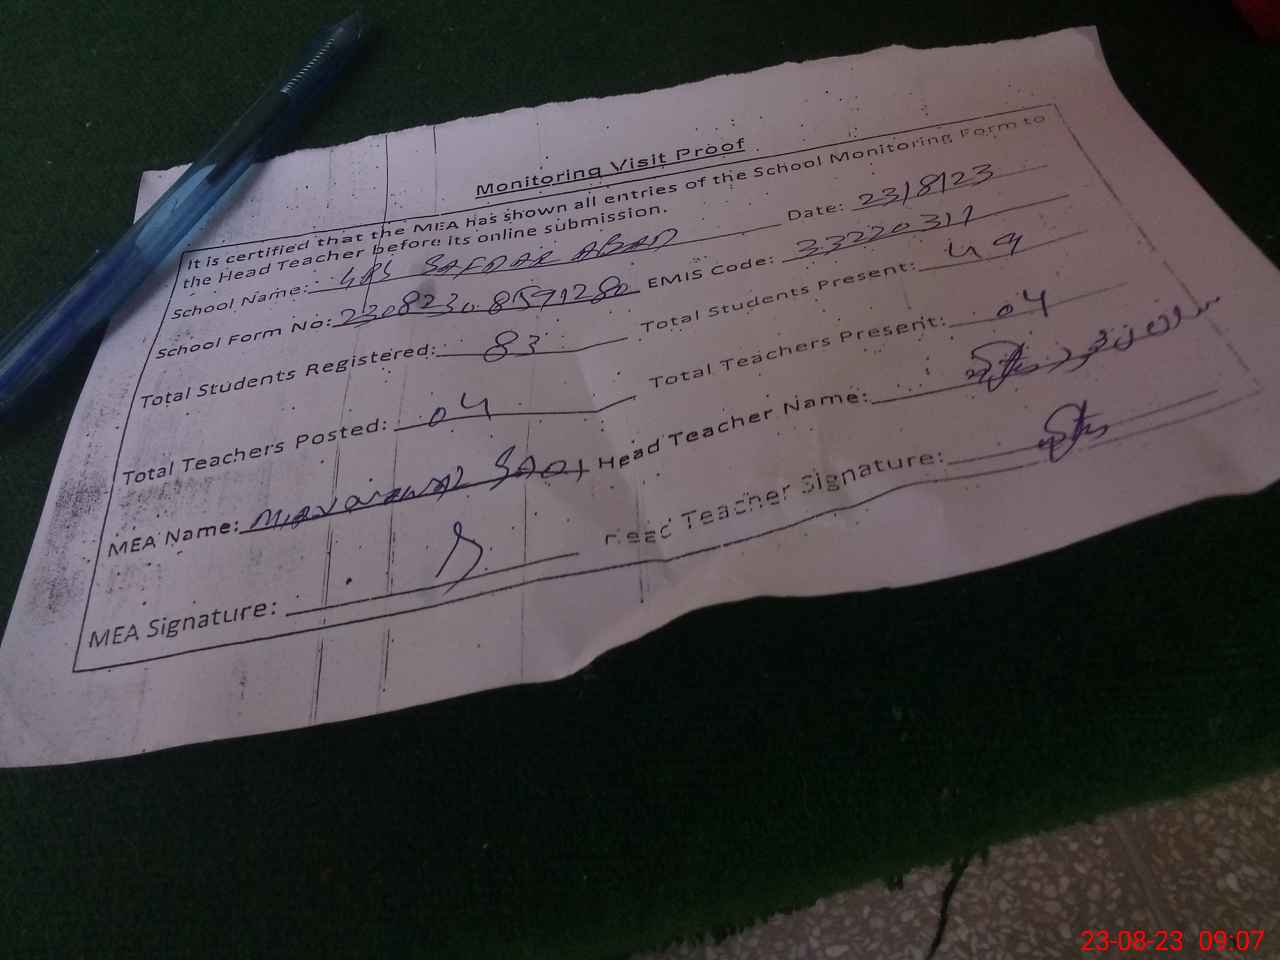 Monitoring Visit Proof
It is certified that the MEA has shown all entries of the School Monitoring Form to
the Head Teacher before its online submission.
School Name: GPS SAFDAR ABAD Date: 23/8/23
School Form No: EMIS Code:
Total Students Registered: 83 Total Students Present: 49
Total Teachers Posted: 04 Total Teachers Present: 04
MEA Name: Head Teacher Name:
MEA Signature: Head Teacher Signature:
23-08-23 09:07